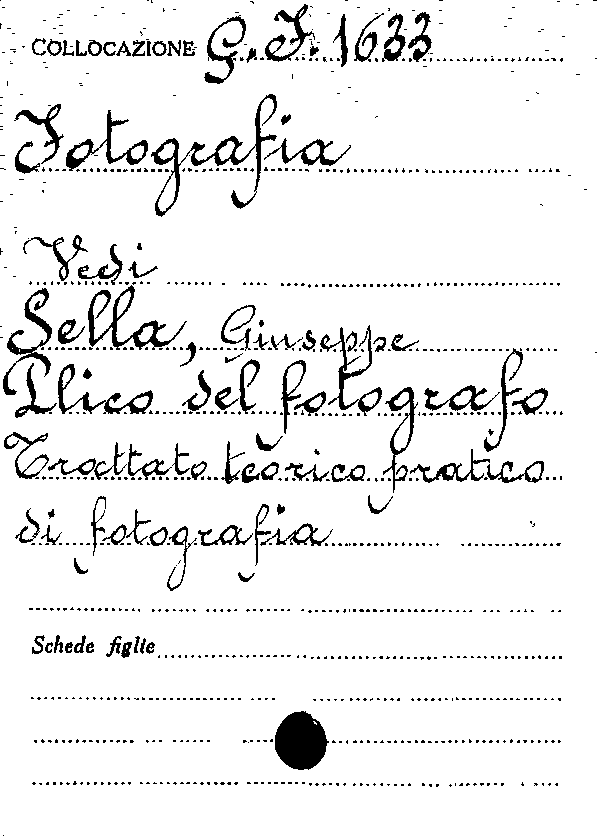 COLLOCAZIONE G.F. 1633
Fotografia
Vedi
Sella, Giuseppe
Plico del fotografo
Trattato teorico pratico
di fotografia
Schede figlie